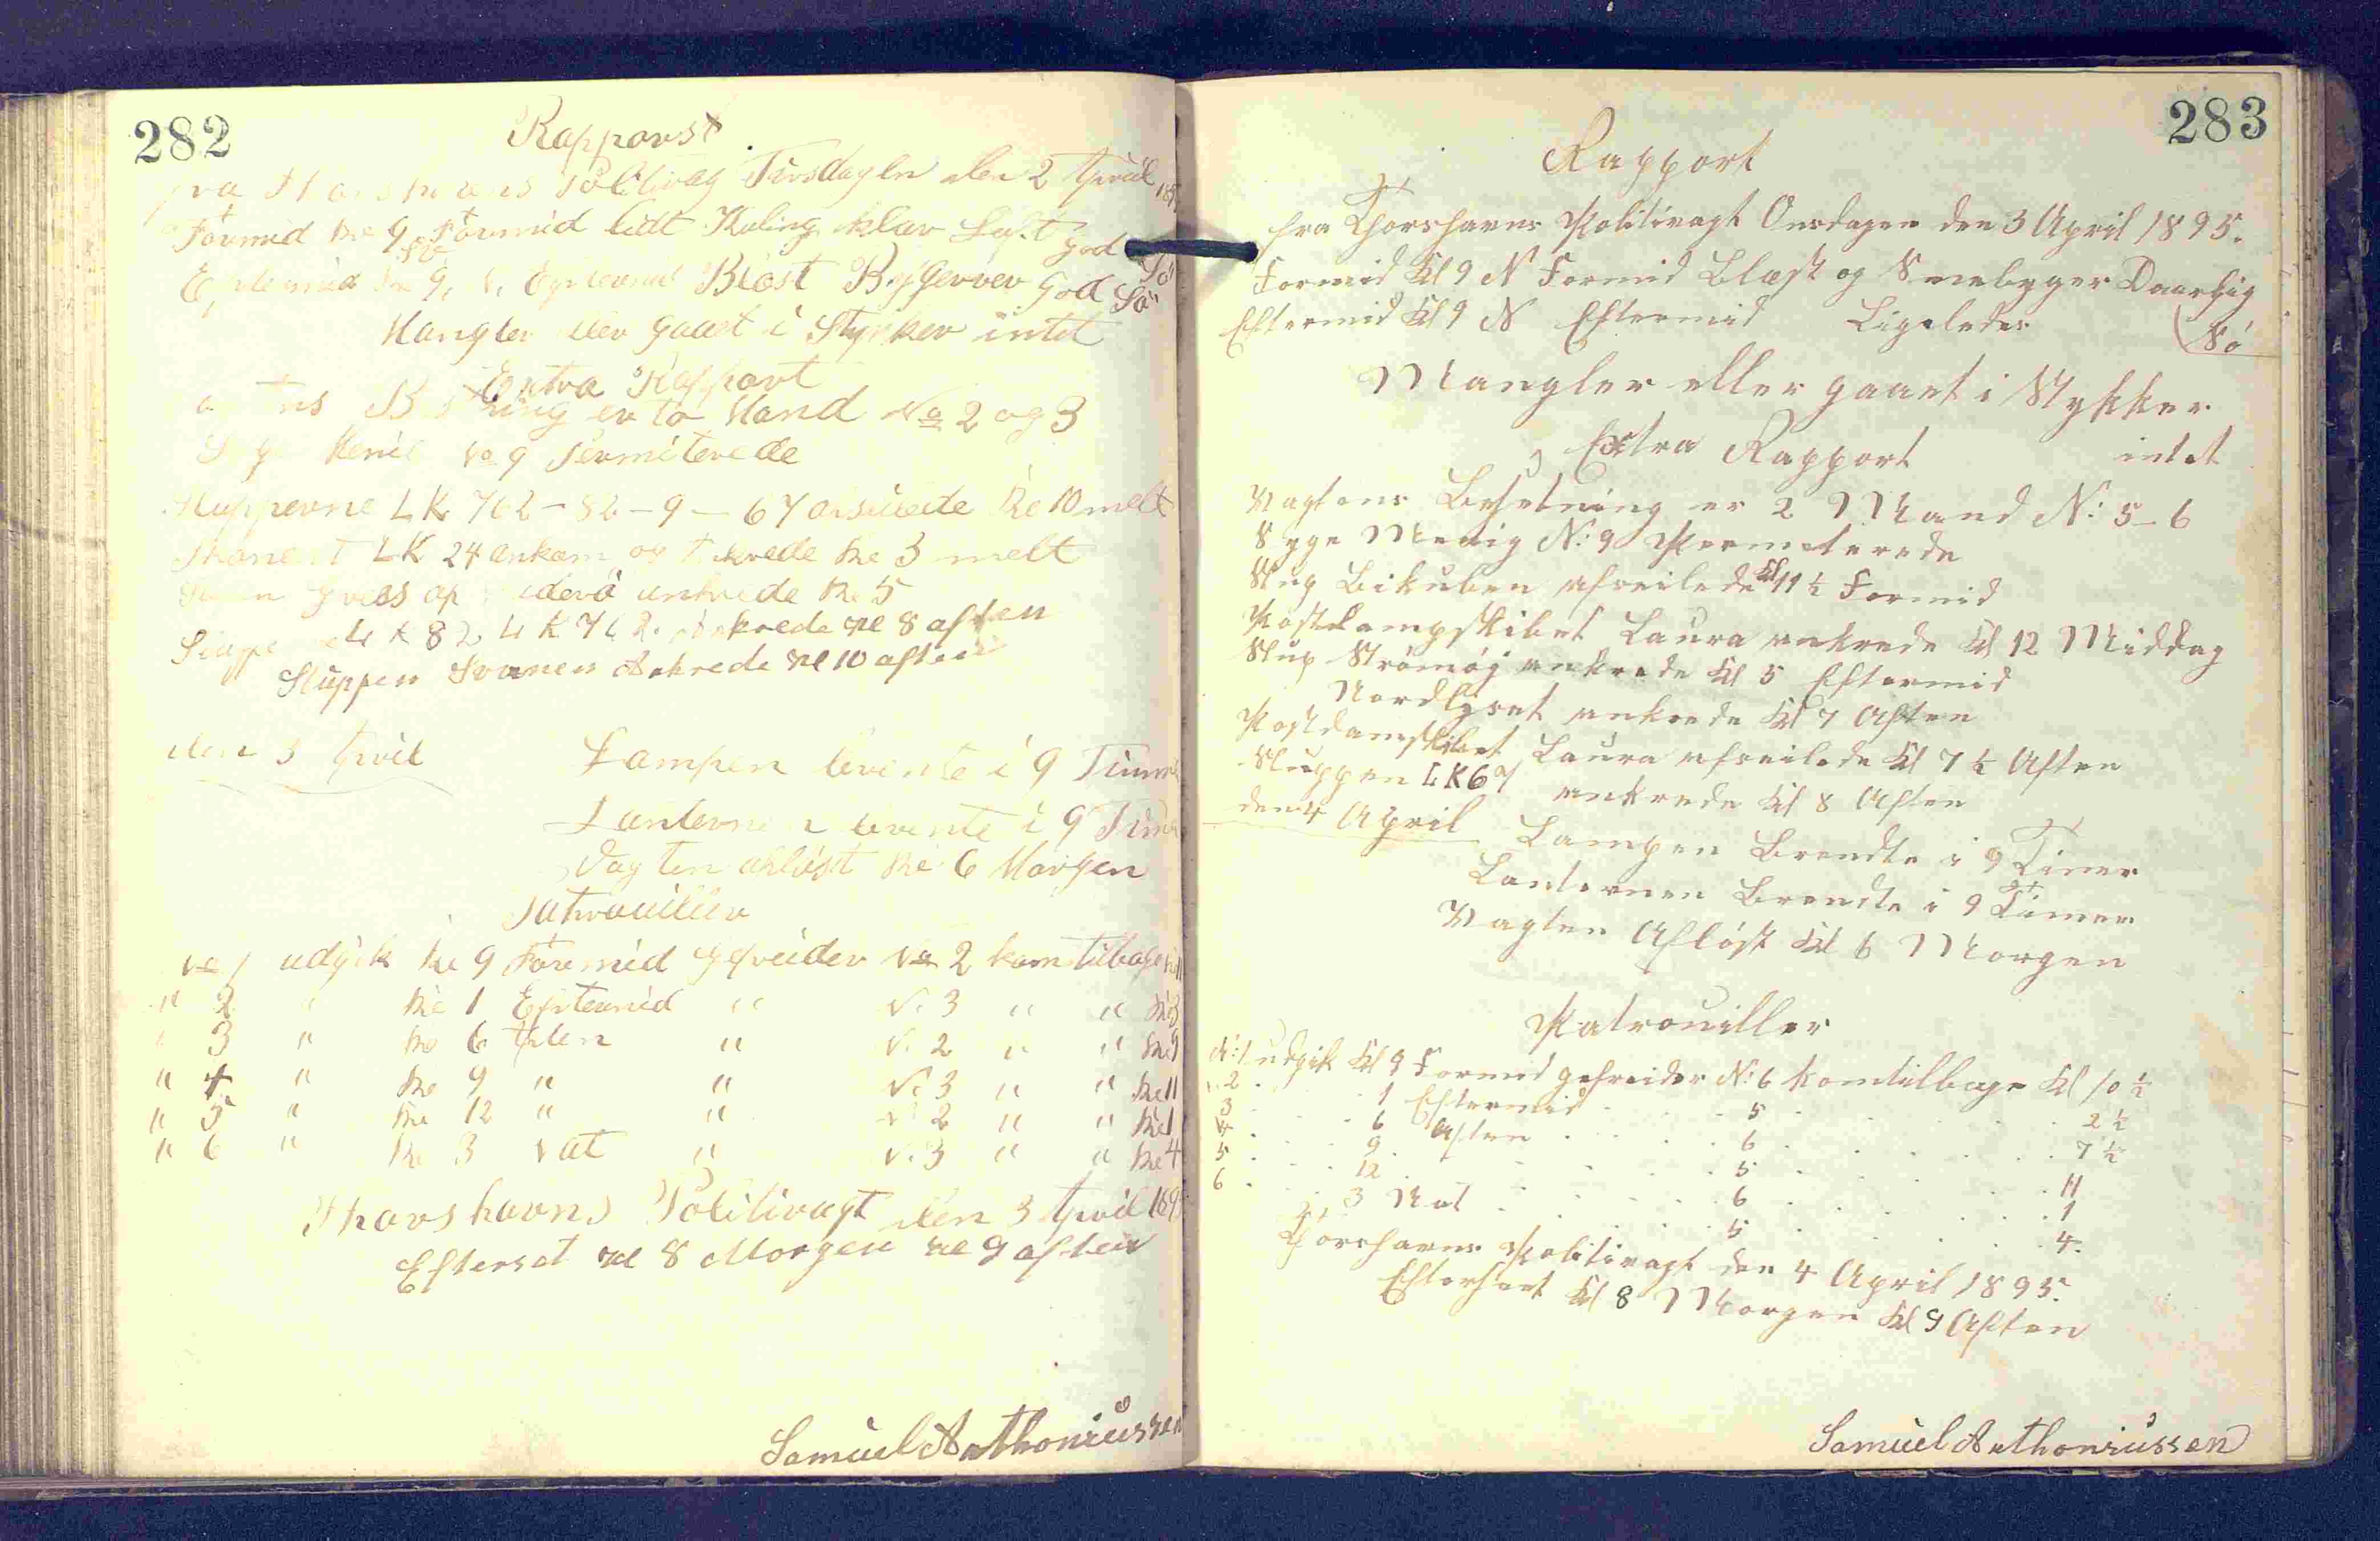 282
Rapport
fra Thorshavns Politivag Tirsdagen den 2 April
Formid Kl 9 Formid lidt Kuling klar Luft god Sö
Eftermid Kl 9 Eftermid Blæst God Sö
Mangler eler gaaet i Stykker intet
Extra Rapport
er to Mand No 2 og 3
No 9 Permiterede
Slupperne LK 762 - 82 - 9 - 67 Kl 10 melt
LK 24 ankom og Kl 3 melt
ankrede Kl 5
LK 82 LK 762 ankrede Kl 8 aften
Sluppen Svanen Ankrede Kl 10 aften
den 3 April Lampen brente i 9 Timer
Lanternen brente i 9 Timer
Vagten aflöst Kl 6 Morgen
Patrouiller
No 1 udgik Kl 9 Formid gefreider No 2 kom tilbage
" 2 " Kl 1 Eftermid " N. 3 " " Kl 3
" 3 " Kl 6 Aften " N. 2 " " Kl 9
" 4 " Kl 9 " " N. 3 " " Kl 11
" 5 " Kl 12 " " N. 2 " " Kl 1
" 6 " Kl 3 Nat " N. 3 " " Kl 4
Thorshavns Politivagt den 3 April
Efterset Kl 8 Morgen Kl 9 aften
Samuel Anthoniussen
283
Rapport
fra Thorshavns Politivagt Onsdagen den 3 April 1895.
Formid Kl 9 N Formid Blæst og Snebyger Daarlig
Eftermid Kl 9 N Eftermid Ligeledes Sö
Mangler eller gaaet i Stykker
intet
Extra Rapport
Vagtens Besetning er 2 Mand N: 5-6
Syge Menig N: 9 Permeterede
Slup Bikuben afseilede Kl 11½ Formid
Postdampskibet Laura ankrede Kl 12 Middag
Slup Strömöj ankrede Kl 5 Eftermid
Nordlyset ankrede Kl 7 Aften
Postdamskibet Laura afseilede Kl 7½ Aften
Sluppen LK 67 ankrede Kl 8 Aften
den 4 April Lampen Brendte i 9 Timer
Lanternen Brendte i 9 Timer
Vagten Aflöst Kl 6 Morgen
Patrouiller
N: 1 udgik Kl 9 Formid gefreider N: 6 kom tilbage Kl 10½
" 2 . 1 Eftermid . 5 . 2½
3 . 6 Aften . 6 . 7½
4 . 9 . 5 . 11
5 . 12 . 6 . 1
6 . 3 Nat . 5 . 4.
Thorshavns Politivagt den 4 April 1895.
Efterseet Kl 8 Morgen Kl 9 Aften
Samuel Anthoniussen